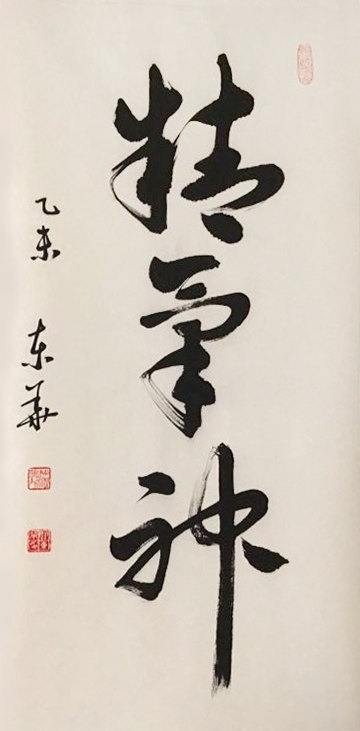 精氣神
乙未 东华